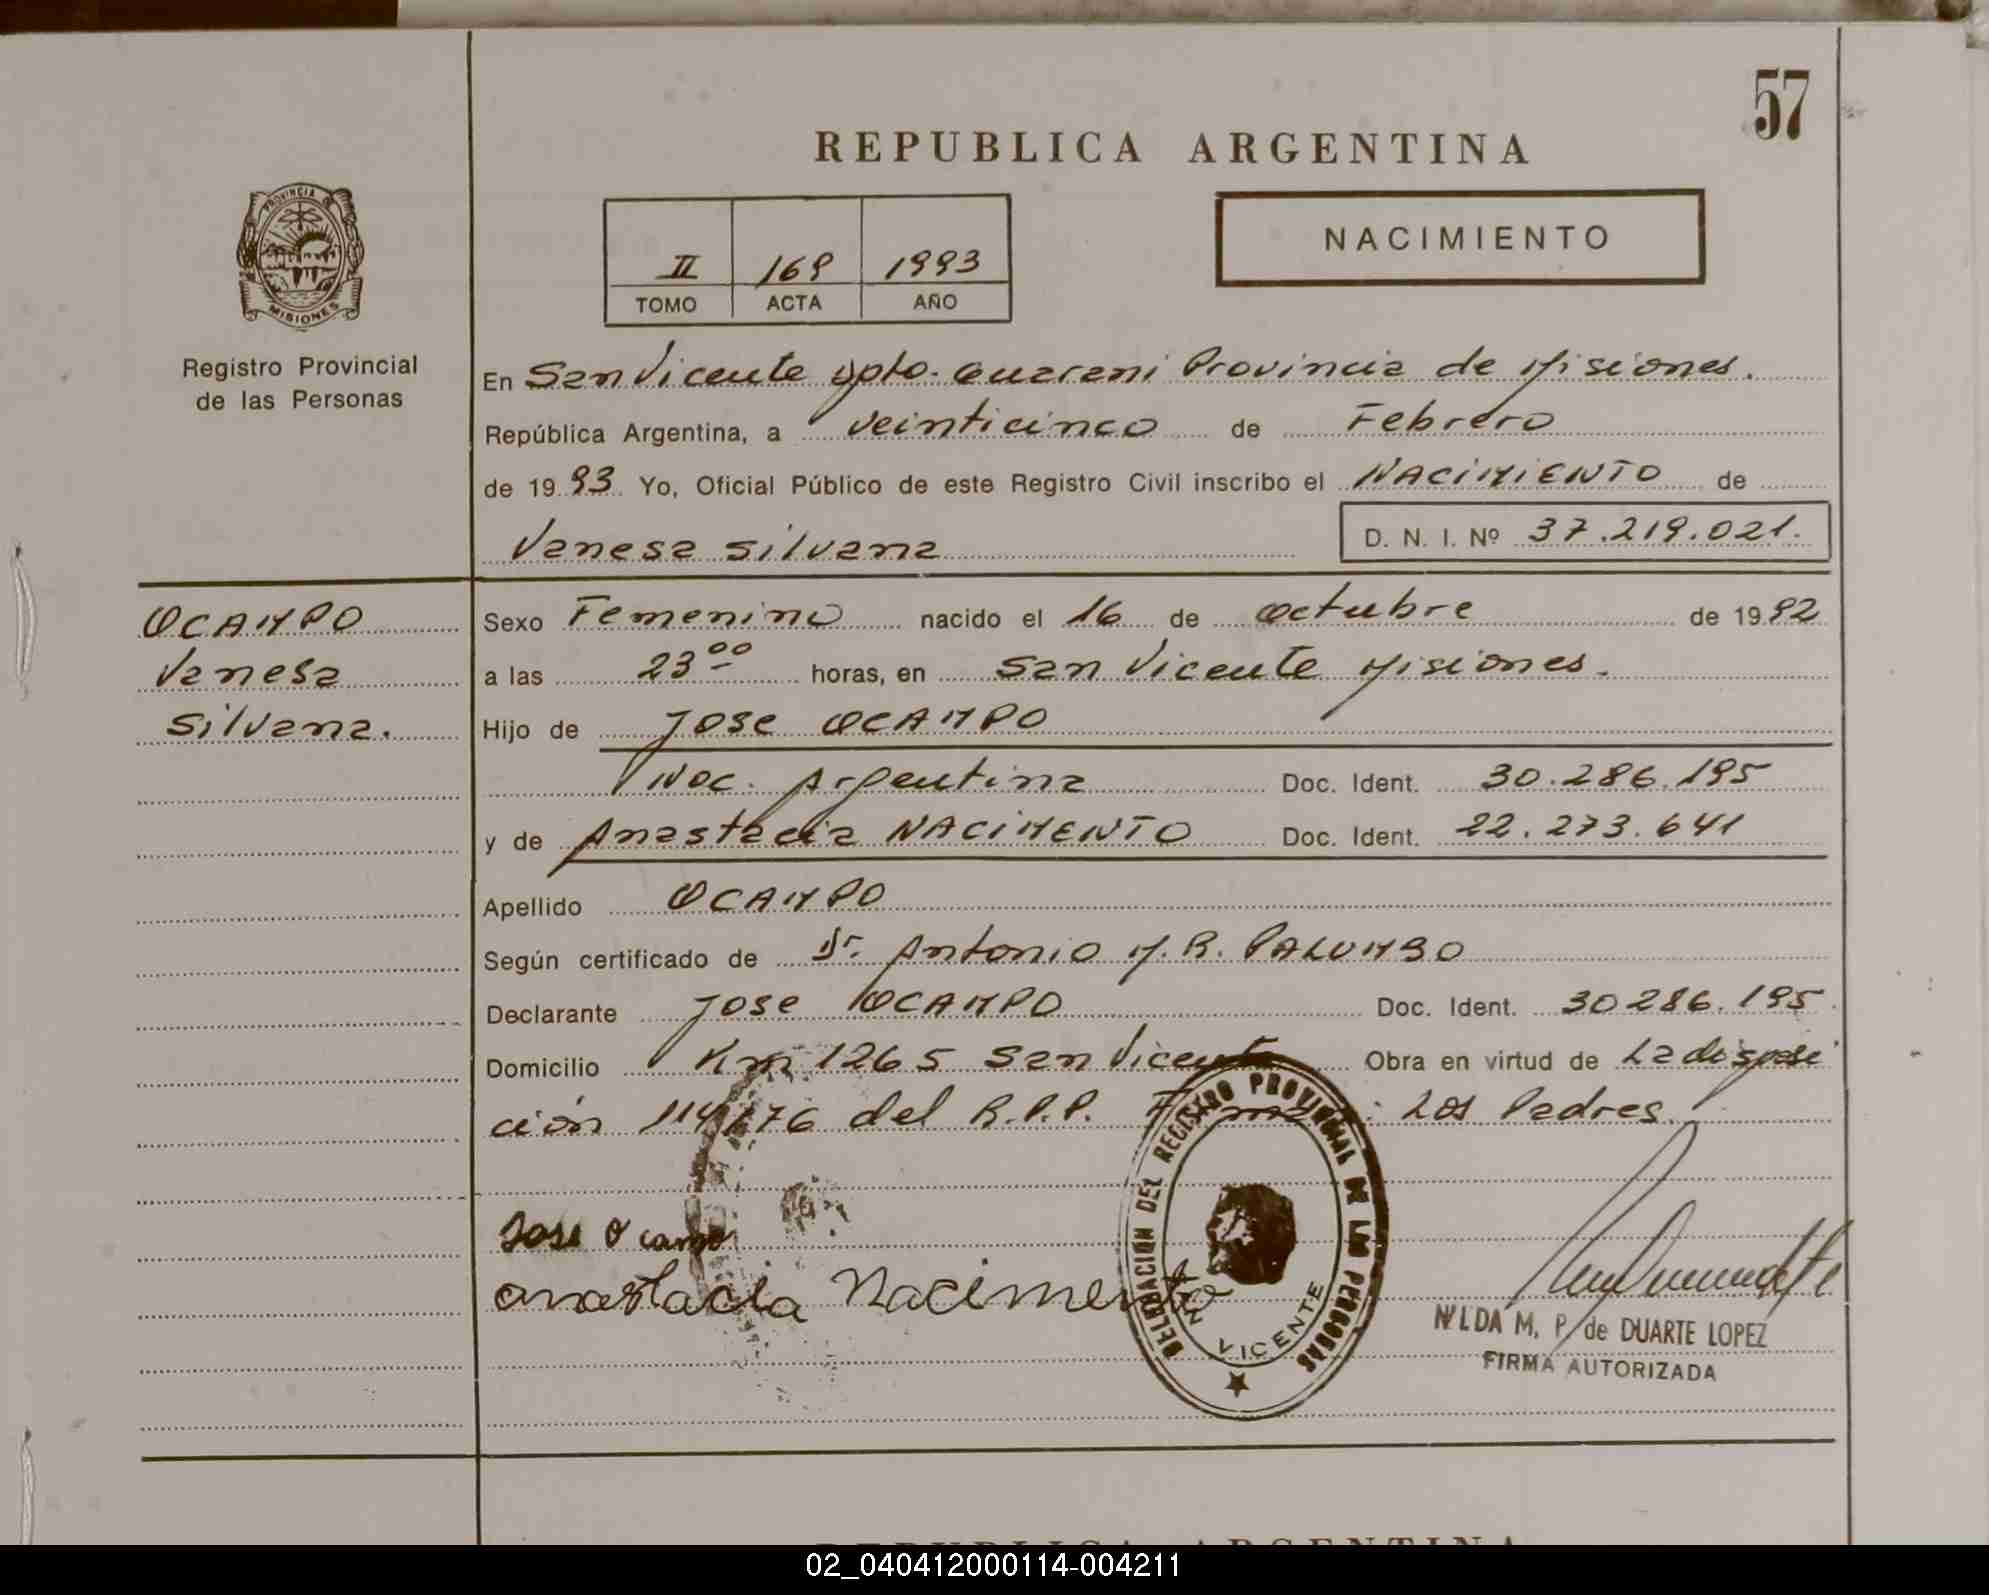 57
REPUBLICA ARGENTINA
PROVINCIA DE
MISIONES
Registro Provincial
de las Personas
NACIMIENTO
II 169 1993
TOMO ACTA AÑO
En San Vicente Dpto. Guarani Provincia de Misiones.
República Argentina, a veinticinco de Febrero
de 1993 Yo, Oficial Público de este Registro Civil inscribo el NACIMIENTO de
Vanesa Silvana D. N. I. Nº 37.219.021.
OCAMPO
Vanesa
Silvana.
Sexo Femenino nacido el 16 de octubre de 1992
a las 23 00 horas, en San Vicente Misiones.
Hijo de Jose OCAMPO
Nac. Argentina Doc. Ident. 30.286.195
y de Anastacia NACIMENTO Doc. Ident. 22.273.641
Apellido OCAMPO
Según certificado de Dr. Antonio M. R. PALUMBO
Declarante Jose OCAMPO Doc. Ident. 30286.195
Domicilio Km 1265 San Vicente Obra en virtud de La disposi
ción 114/76 del R.P.P. Firman: Los Padres
Jose Ocampo
anastacia Nacimento
DELEGACION DEL REGISTRO PROVINCIAL DE LAS PERSONAS
VICENTE
NILDA M. P. de DUARTE LOPEZ
FIRMA AUTORIZADA
REPUBLICA ARGENTINA
02_040412000114-004211